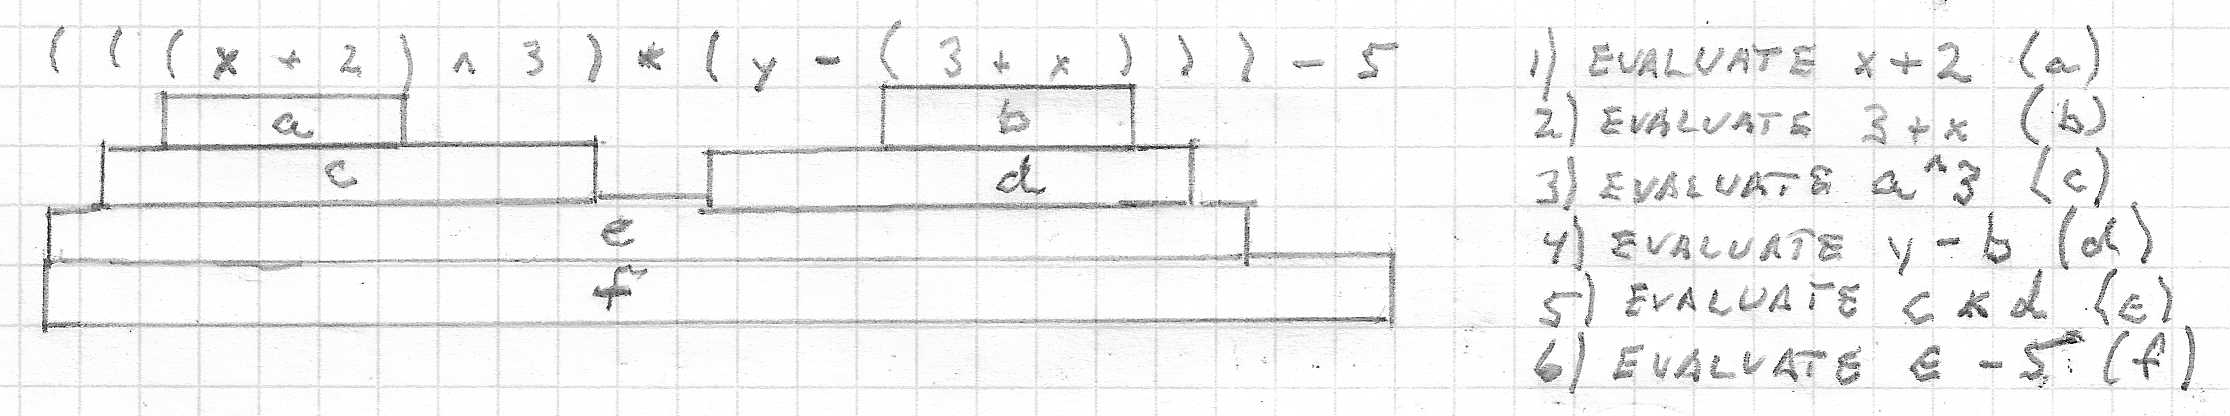 ( ( ( x + 2 ) ^ 3 ) * ( y - ( 3 + x ) ) ) - 5
a
b
c
d
e
f
1) EVALUATE x + 2 (a)
2) EVALUATE 3 + x (b)
3) EVALUATE a ^ 3 (c)
4) EVALUATE y - b (d)
5) EVALUATE c * d (e)
6) EVALUATE e - 5 (f)